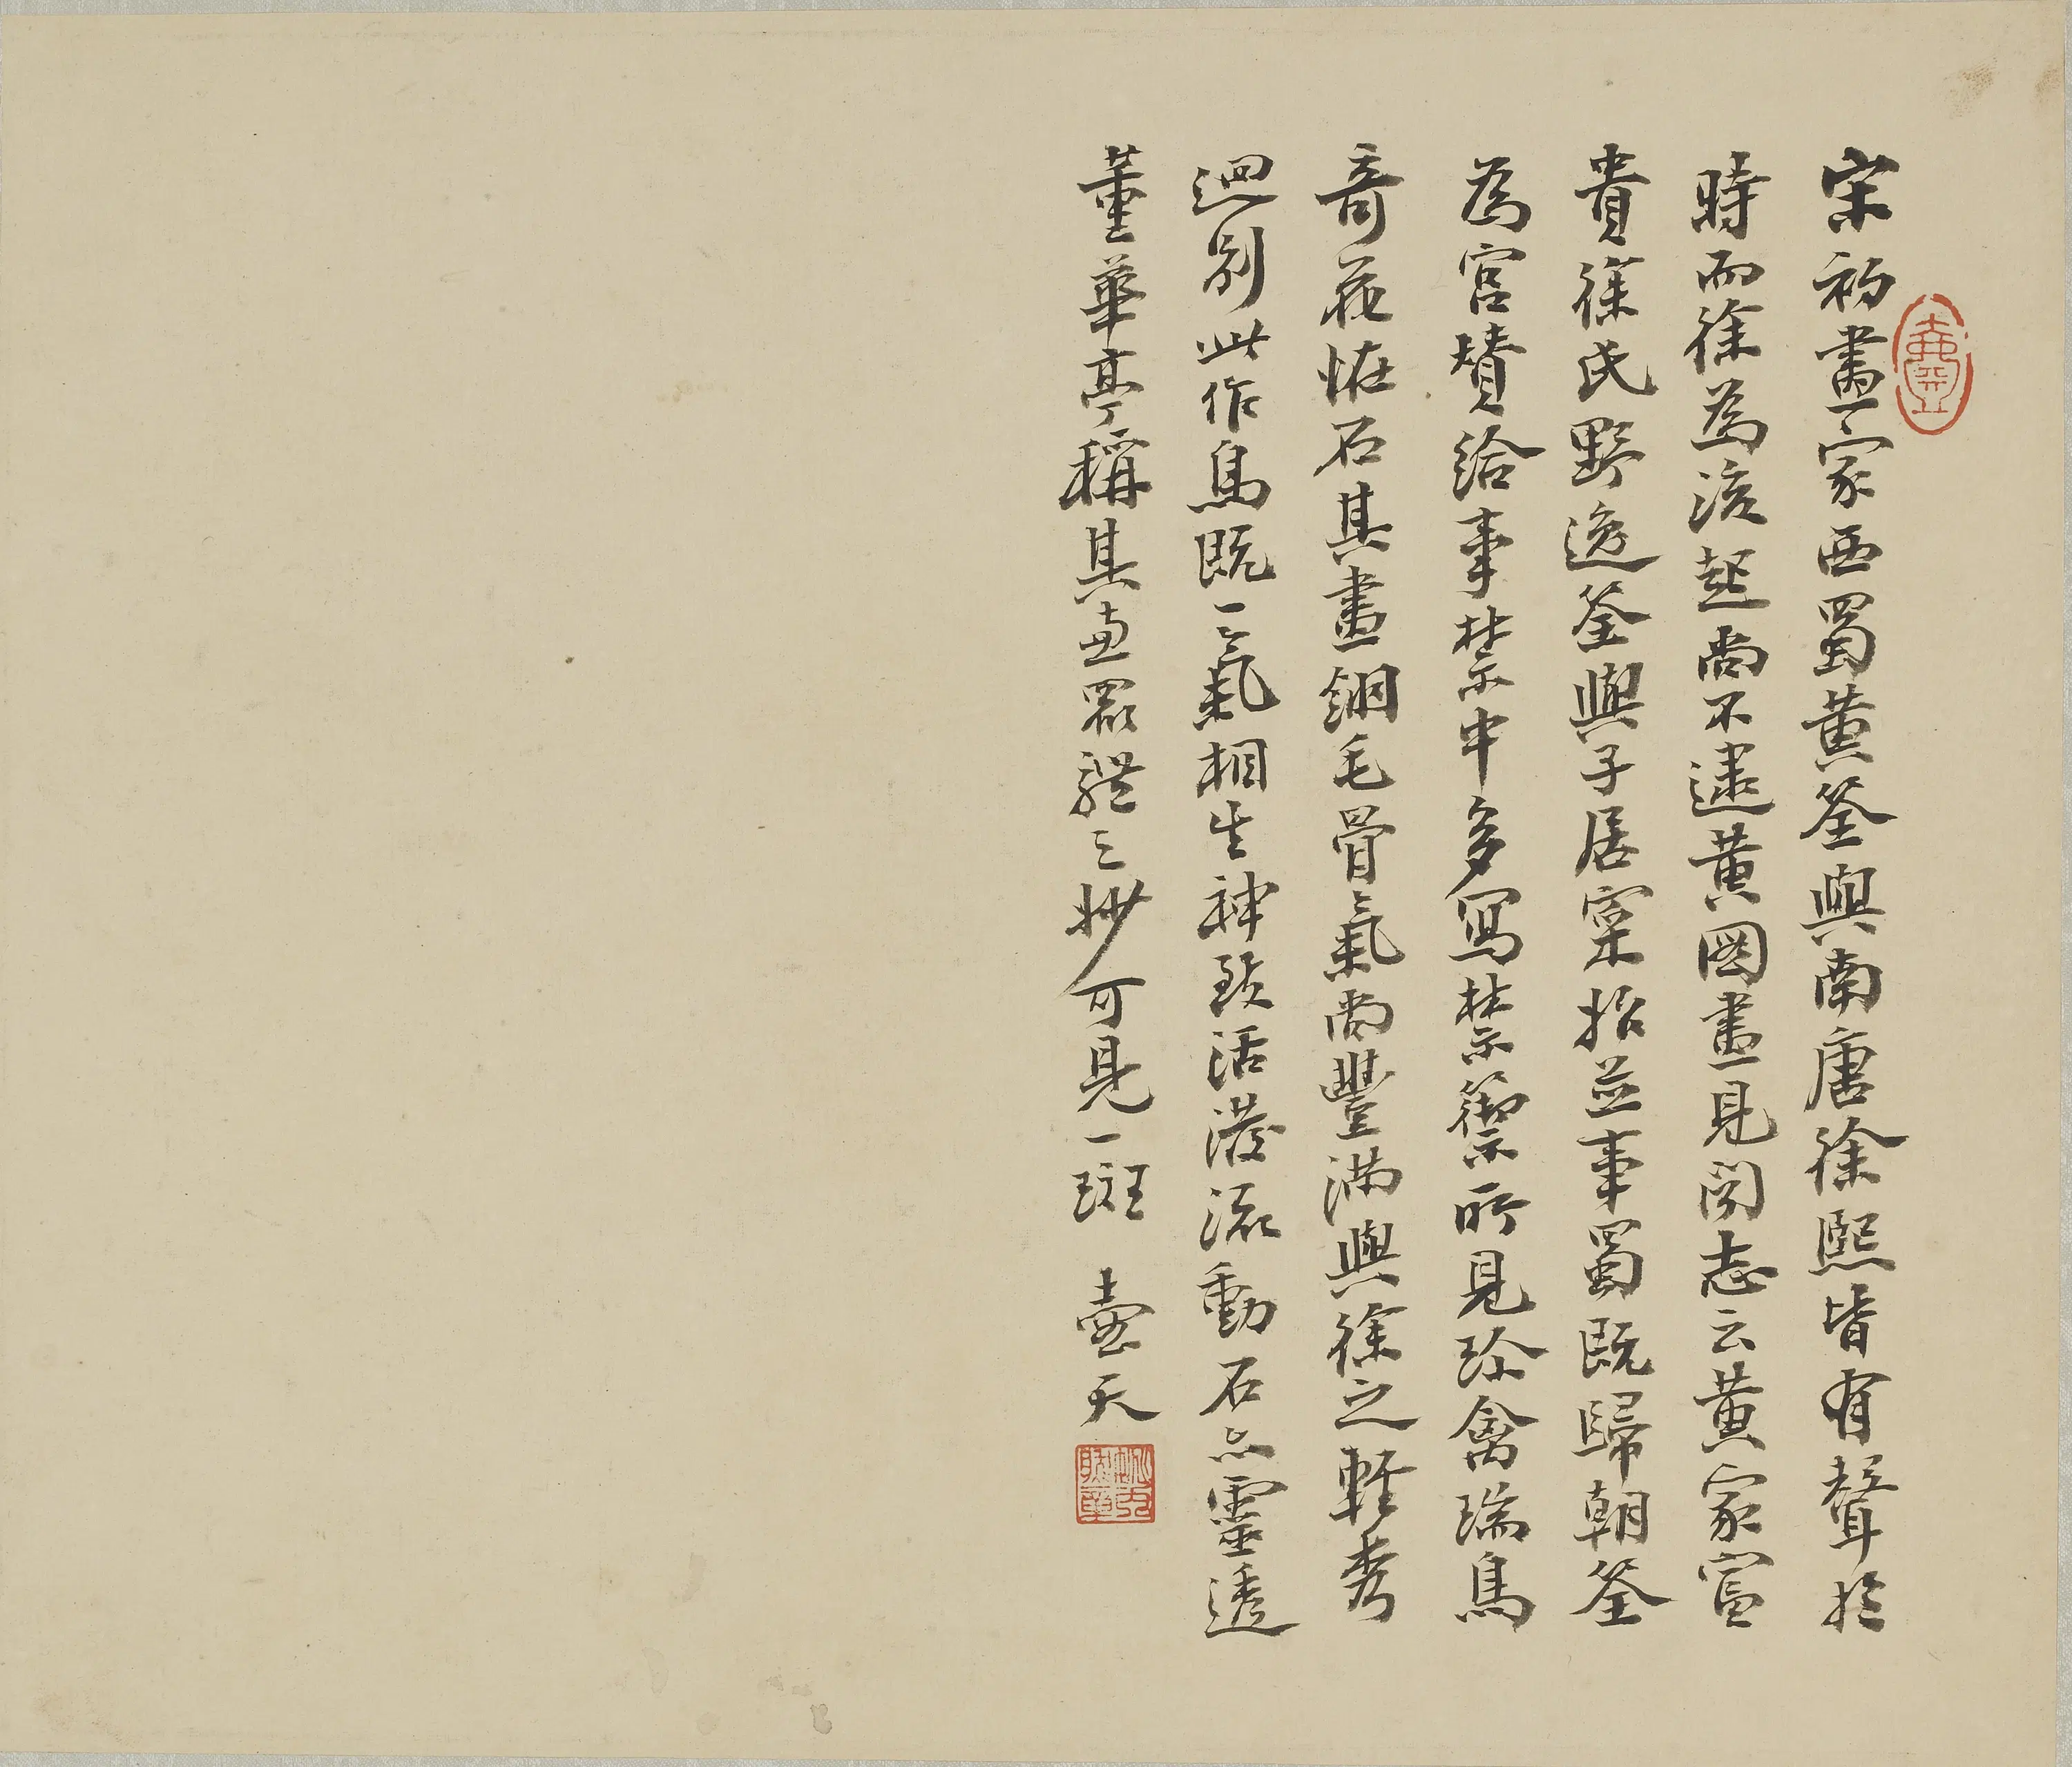 宋初畫家西蜀黃筌與南唐徐熙皆有聲於
時而徐為後起尚不逮黃圖畫見聞志云黃家富
貴徐氏野逸筌與子居寀拾並事蜀既歸朝筌
為宮贊給事禁中多寫禁籞所見珍禽瑞鳥
奇花恠石其畫翎毛骨氣尚豐滿與徐之輕秀
迥別此作鳥既一氣相生神致活潑流動石亦靈透
董華亭稱其兼眾體之妙可見一斑 壺天